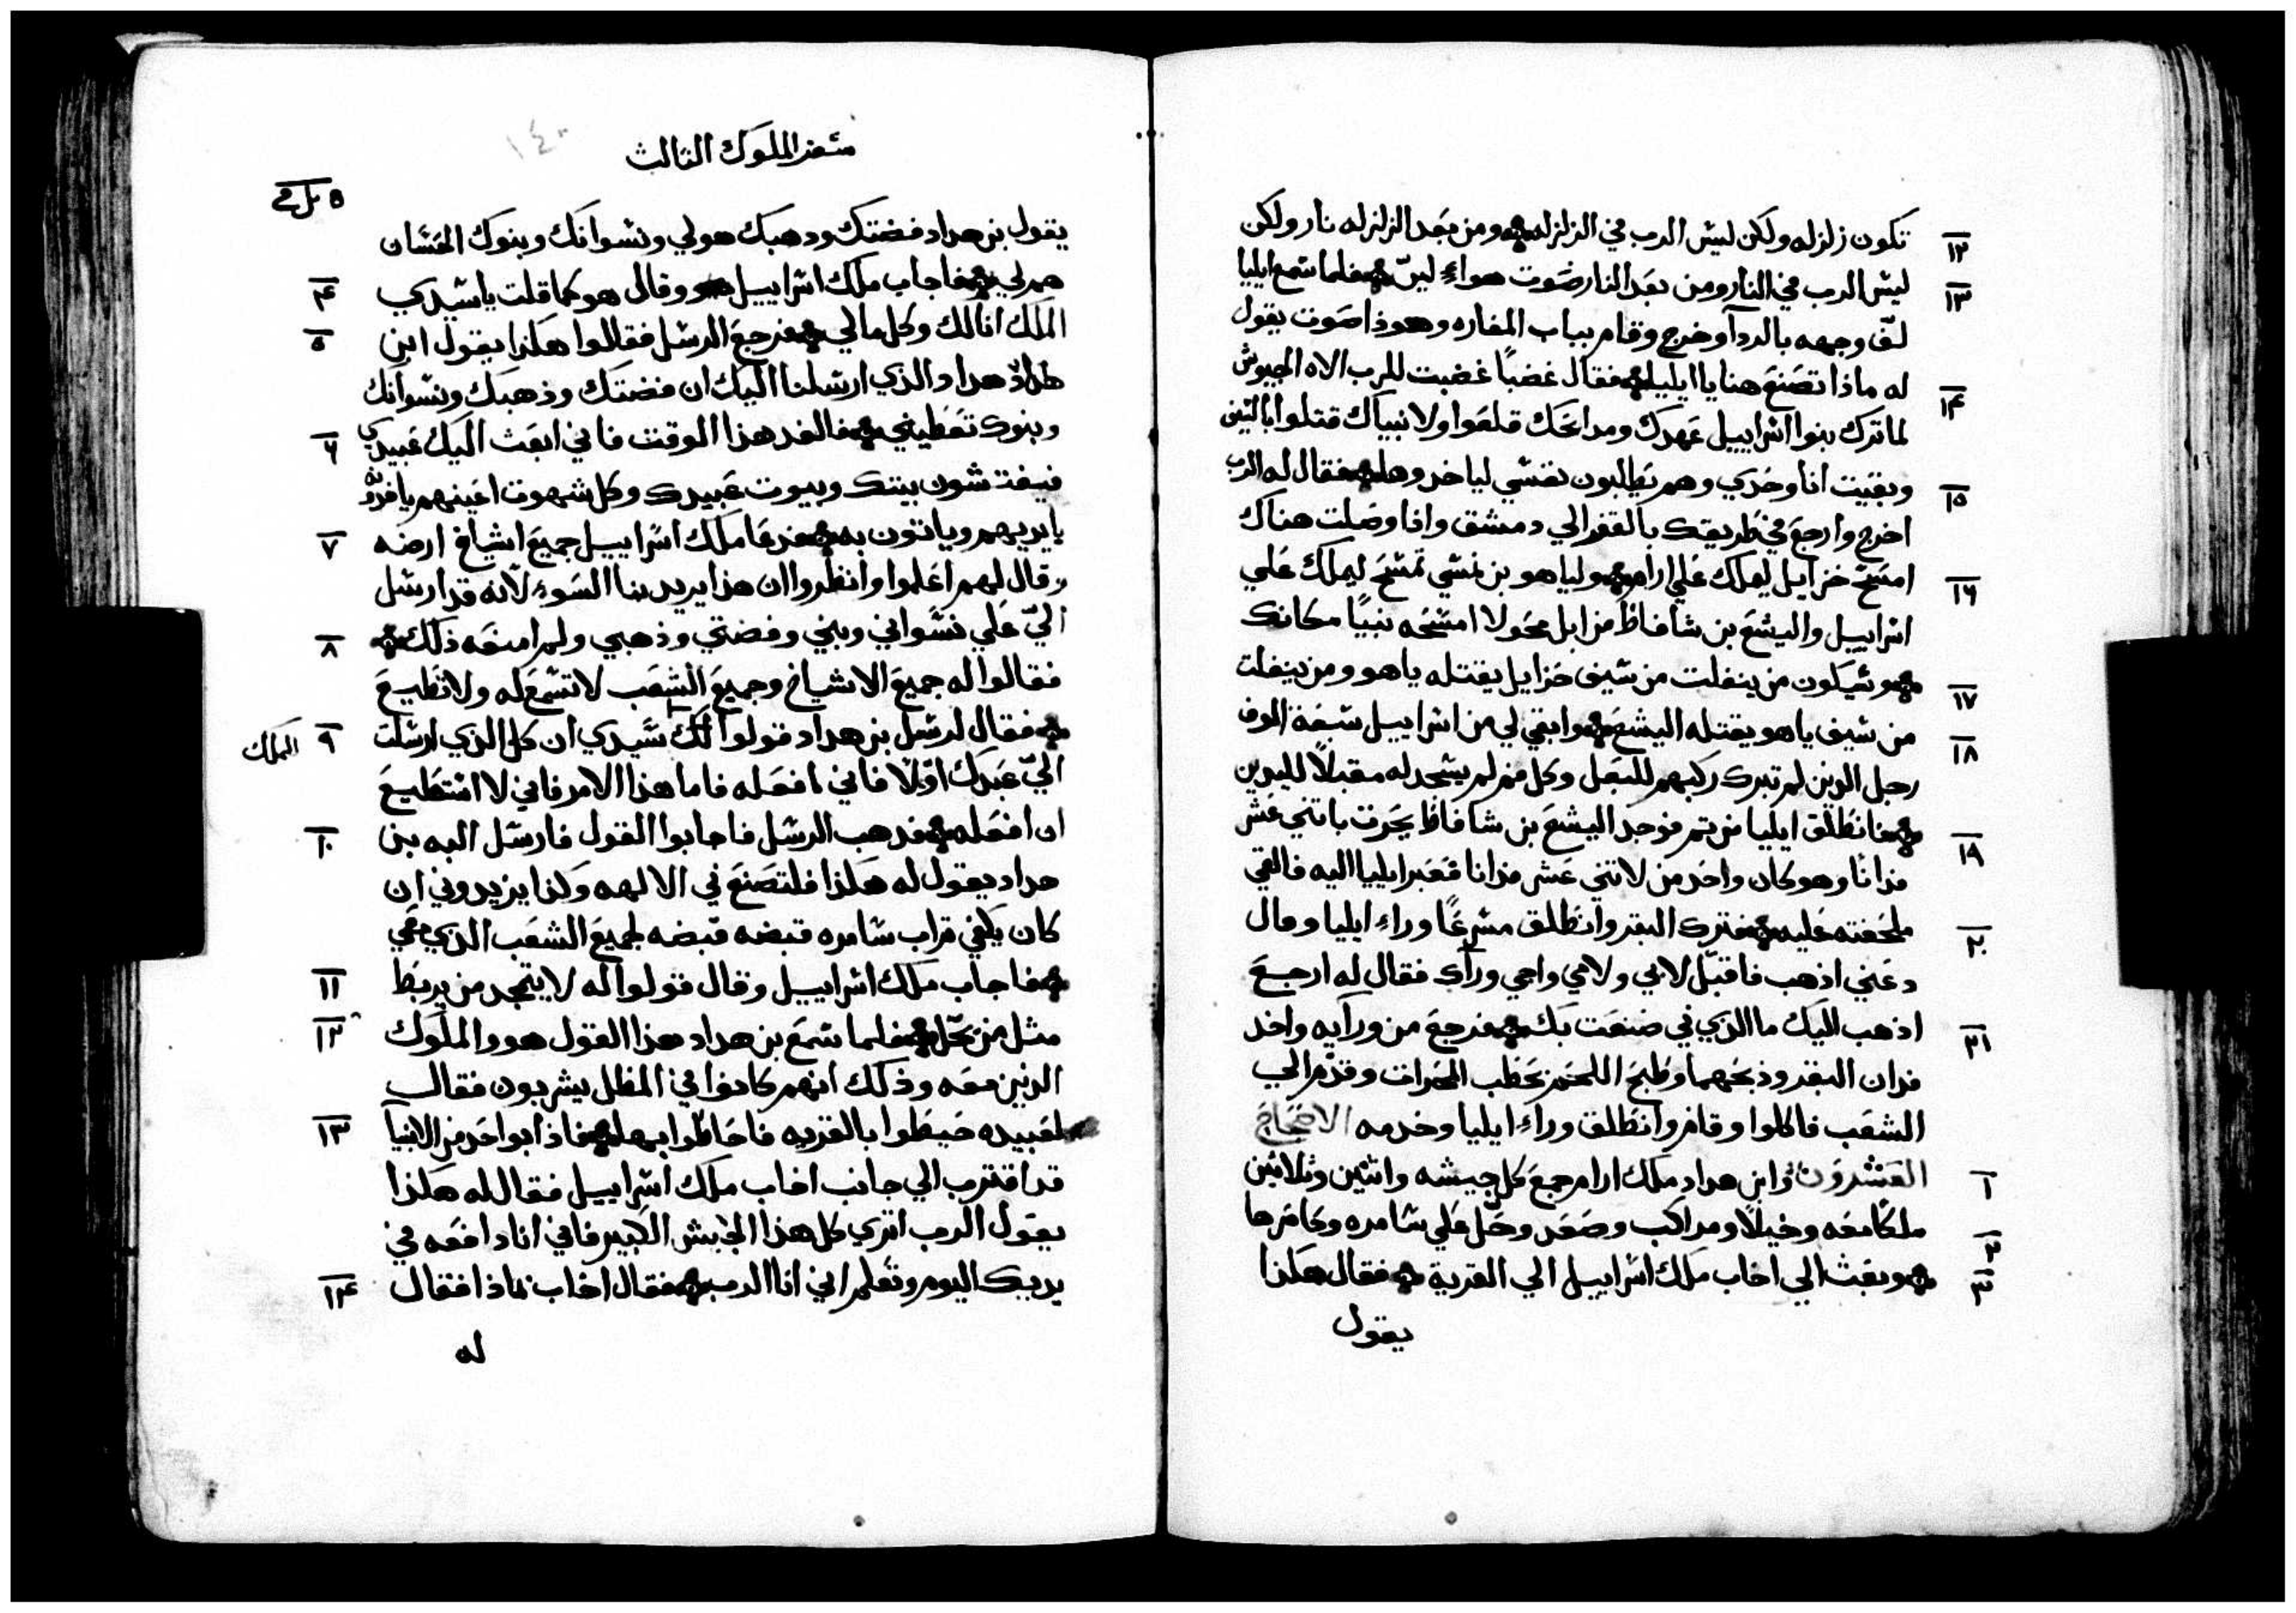 تكون زلزله ولكن ليس الرب في الزلزله ومن بعد الزلزله نار ولكن
١٢
ليس الرب في النار ومن بعد النار صوت هواءٍ ليّن فلما سمع ايليا
١٣
لفّ وجهه بالردآ وخرج وقام بباب المغاره وهوذا صوت يقول
له ماذا تصنع هنا يا ايليا فقال غضباً غضبت للرب الاه الجيوش
١٤
لما ترك بنوا اسراييل عهدك ومدابحك قلعوا ولانبياك قتلوا بالسيف
وبقيت انا وحدي وهم يطلبون نفسي لياخدوها فقال له الرب
١٥
اخرج وارجع في طريقك بالقفر الي دمشق واذا وصلت هناك
امسح حزاييل ليملك علي ارام ولياهو بن نمشي تمسح ليملك علي
١٦
اسراييل واليشع بن شافاط من ابل محولا امسحه نبيًا مكانك
وسيكون من ينفلت من سيف حزاييل يقتله ياهو ومن ينفلت
١٧
من سيف ياهو يقتله اليشع وابقي لي من اسراييل سبعة الوف
١٨
رجل الدين لم تبرك ركبهم للبعل وكل فم لم يسجد له مقبلاً لليدين
فانطلق ايليا من تم فوجد اليشع بن شافاط يحرت باتني عشر
١٩
فدانًا وهو كان واحد من لاتني عشر فدانا فعبر ايليا اليه فالقي
ملحفته عليه فترك البقر وانطلق مسرعًا وراء ايليا وقال
٢٠
دعني اذهب فاقبّل لابي ولامي واجي ورآك فقال له ارجع
اذهب اليك ما الذي ني صنعت بك فرجع من ورآيه واخد
٢١
فدان البقر وذبحهما وطبخ اللحم بحطب المحرات وقدّم الي
الشعب فاكلوا وقام وانطلق وراء ايليا وخدمه الاصحاح
العشرون وابن هداد ملك ارام جمع كل جيشه واتنين وثلاتين
١
ملكًا معه وخيلاً ومراكب وصعد وحلّ علي شامره وحاصرها
٢
وبعث الي اخاب ملك اسراييل الي القرية فقال هكذا
٣
يقول
سفر الملوك الثالث
١٤٠
يقول بن هداد فضتك ودهبك هو لي ونسوانك وبنوك الحسان
هم لي فاجاب ملك اسراييل وقال هو كما قلت يا سيدي
٤
الملك انا لك وكل ما لي فرجع الرسل فقالوا هكذا يقول ابن
٥
هداد الذي ارسلنا اليك ان فضتك وذهبك ونسوانك
وبنوك تعطيني فالغد هذا الوقت فاني ابعث اليك عبيدي
٦
فيفتشون بيتك وبيوت عبيدك وكل شهوت اعينهم ياخدونه
بايديهم وياتون به فدعا ملك اسراييل جميع اشياخ ارضه
٧
وقال لهم اعلموا وانظروا ان هذا يريد بنا السوء لانه قد ارسل
اليّ علي نسواني وبني وفضتي وذهبي ولم امنعه ذلك
٨
فقالوا له جميع الاشياخ وجميع الشعب لا تسمع له ولا تطيع
فقال لرسل بن هداد قولوا لك سيدي ان كل الذي ارسلت
٩
الملك
اليّ عبدك اوّلاً فاني افعله فاما هذا الامر فاني لا استطيع
ان افعله فدهب الرسل فاجابوا القول فارسل اليه بن
١٠
هداد يقول له هكذا فلتصنع ني الالهه وكذا يزيدوني ان
كان يكفي تراب شامره قبضه قبضه لجميع الشعب الذي معي
فاجاب ملك اسراييل وقال قولوا له لا يتمجد من يربط
١١
مثل من يحل فلما سمع بن هداد هذا القول هو والملوك
١٢
الدين معه وذلك انهم كانوا في المظل يشربون فقال
لعبيده حيطوا بالقريه فاحاطوا بها فاذا بواحد من الانبيآ
١٣
قد اقترب الي جانب اخاب ملك اسراييل فقال له هكذا
يقول الرب اتري كل هذا الجيش الكبير فاني انا دافعه في
يديك اليوم وتعلم اني انا الرب فقال اخاب بماذا فقال
١٤
له